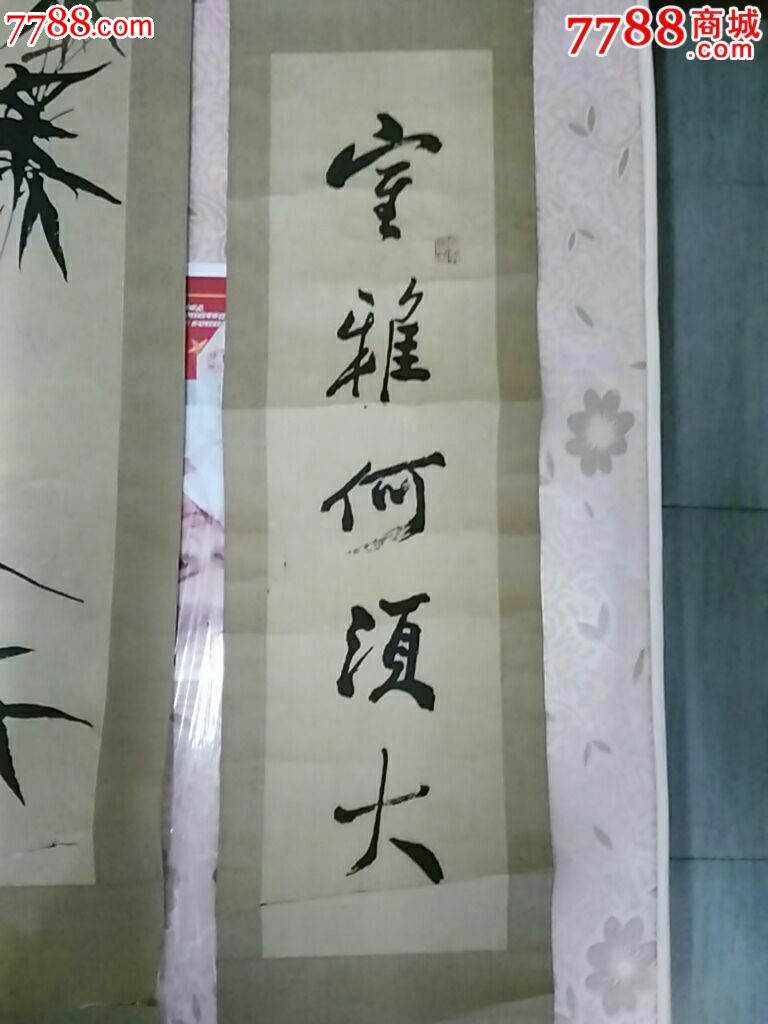 7788.com
7788商城
.com
室雅何須大